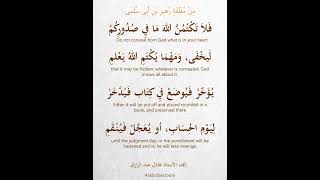 مِنْ مُعَلَّقَةِ زُهَيْرِ بْنِ أَبِي سُلْمَى
فَلاَ تَكْتُمُنَّ اللهَ مَا فِي صُدُورِكُمْ
Do not conceal from God what is in your heart
لِيَخْفَى، وَمَهْمَا يُكْتَمِ اللهُ يَعْلَمِ
that it may be hidden; whatever is concealed, God
knows all about it.
يُؤَخَّرْ فَيُوضَعْ فِي كِتَابٍ فَيُدَّخَرْ
Either it will be put off and placed recorded in a
book, and preserved there
لِيَوْمِ الْحِسَابِ، أَو يُعَجَّلْ فَيُنْقَمِ
until the judgment day; or the punishment will be
hastened and so he will take revenge.
إلقاء الأستاذ عادل عبد الرازق